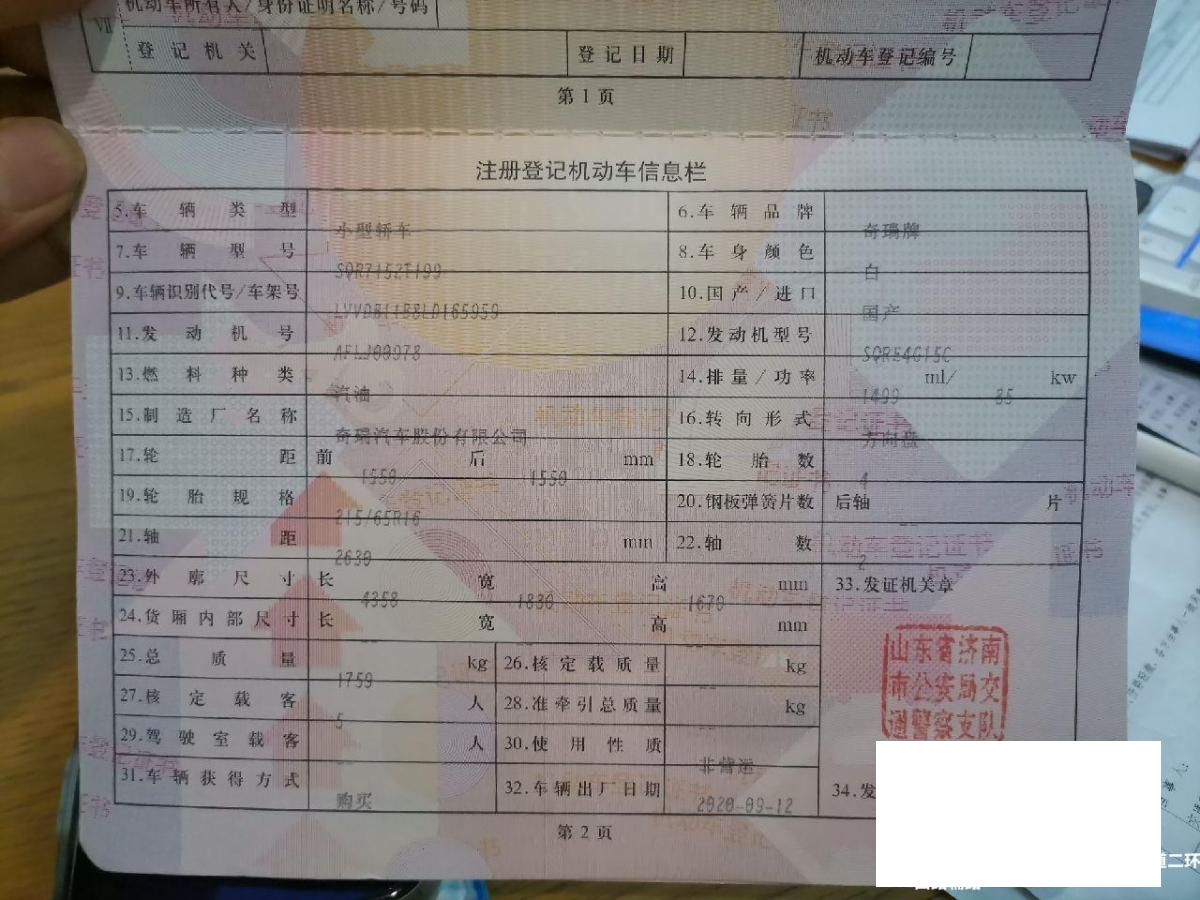 机动车所有人/身份证明名称/号码
VII 登记机关 登记日期 机动车登记编号
第1页
注册登记机动车信息栏
5.车辆类型 小型轿车 6.车辆品牌 奇瑞牌
7.车辆型号 SQR7152T199 8.车身颜色 白
9.车辆识别代号/车架号 LVVDB11B8LD165959 10.国产/进口 国产
11.发动机号 AFLJ00978 12.发动机型号 SQRE4G15C
13.燃料种类 汽油 14.排量/功率 1499 ml/ 85 kw
15.制造厂名称 奇瑞汽车股份有限公司 16.转向形式 方向盘
17.轮距 前 1550 后 1550 mm 18.轮胎数 4
19.轮胎规格 215/65R16 20.钢板弹簧片数 后轴 -- 片
21.轴距 2630 mm 22.轴数 2
23.外廓尺寸 长 4358 宽 1830 高 1670 mm 33.发证机关章
24.货厢内部尺寸 长 -- 宽 -- 高 -- mm
25.总质量 1759 kg 26.核定载质量 -- kg
山东省济南
市公安局交
通警察支队
27.核定载客 5 人 28.准牵引总质量 -- kg
29.驾驶室载客 -- 人 30.使用性质 非营运
31.车辆获得方式 购买 32.车辆出厂日期 2020-09-12 34.发
第2页
道二环